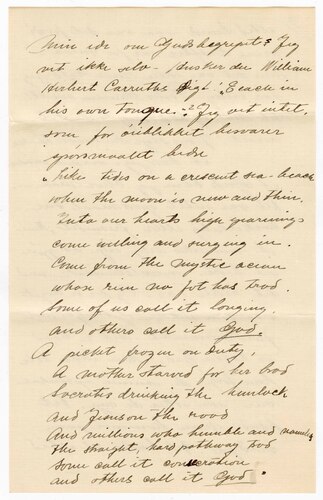 Min ide om Gudsbegrepet? Jeg
vet ikke selv - husker du William
Herbert Carruths digt "Each in
his own Tongue."? Jeg vet intet,
som for öieblikket besvarer
spörsmaalet bedre
"Like tides on a crescent sea-beach
when the moon is new and thin,
Into our hearts high yearnings
come welling and surging in.
Come from the mystic ocean
whose rim no fot has trod.
Some of us call it longing,
and others call it God.
A picket frozen on duty,
A mother starved for her brod
Socrates drinking the hemlock
and Jesus on the rood
And millions who humble and nameless
the straight, hard pathway trod
Some call it consecration
and others call it God"